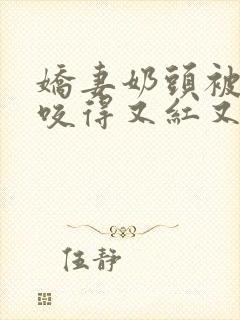 嬌妻奶頭被
咬得又紅又
伍靜